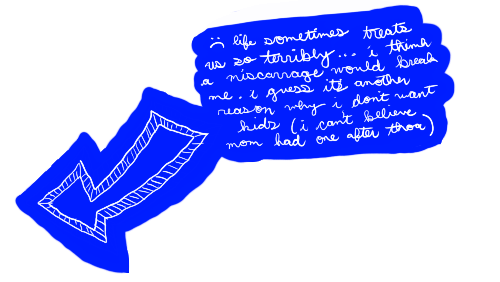 :( life sometimes treats
us so terribly... i think
a miscarrage would break
me. i guess its another
reason why i don't want
kids (i can't believe
mom had one after thoa)